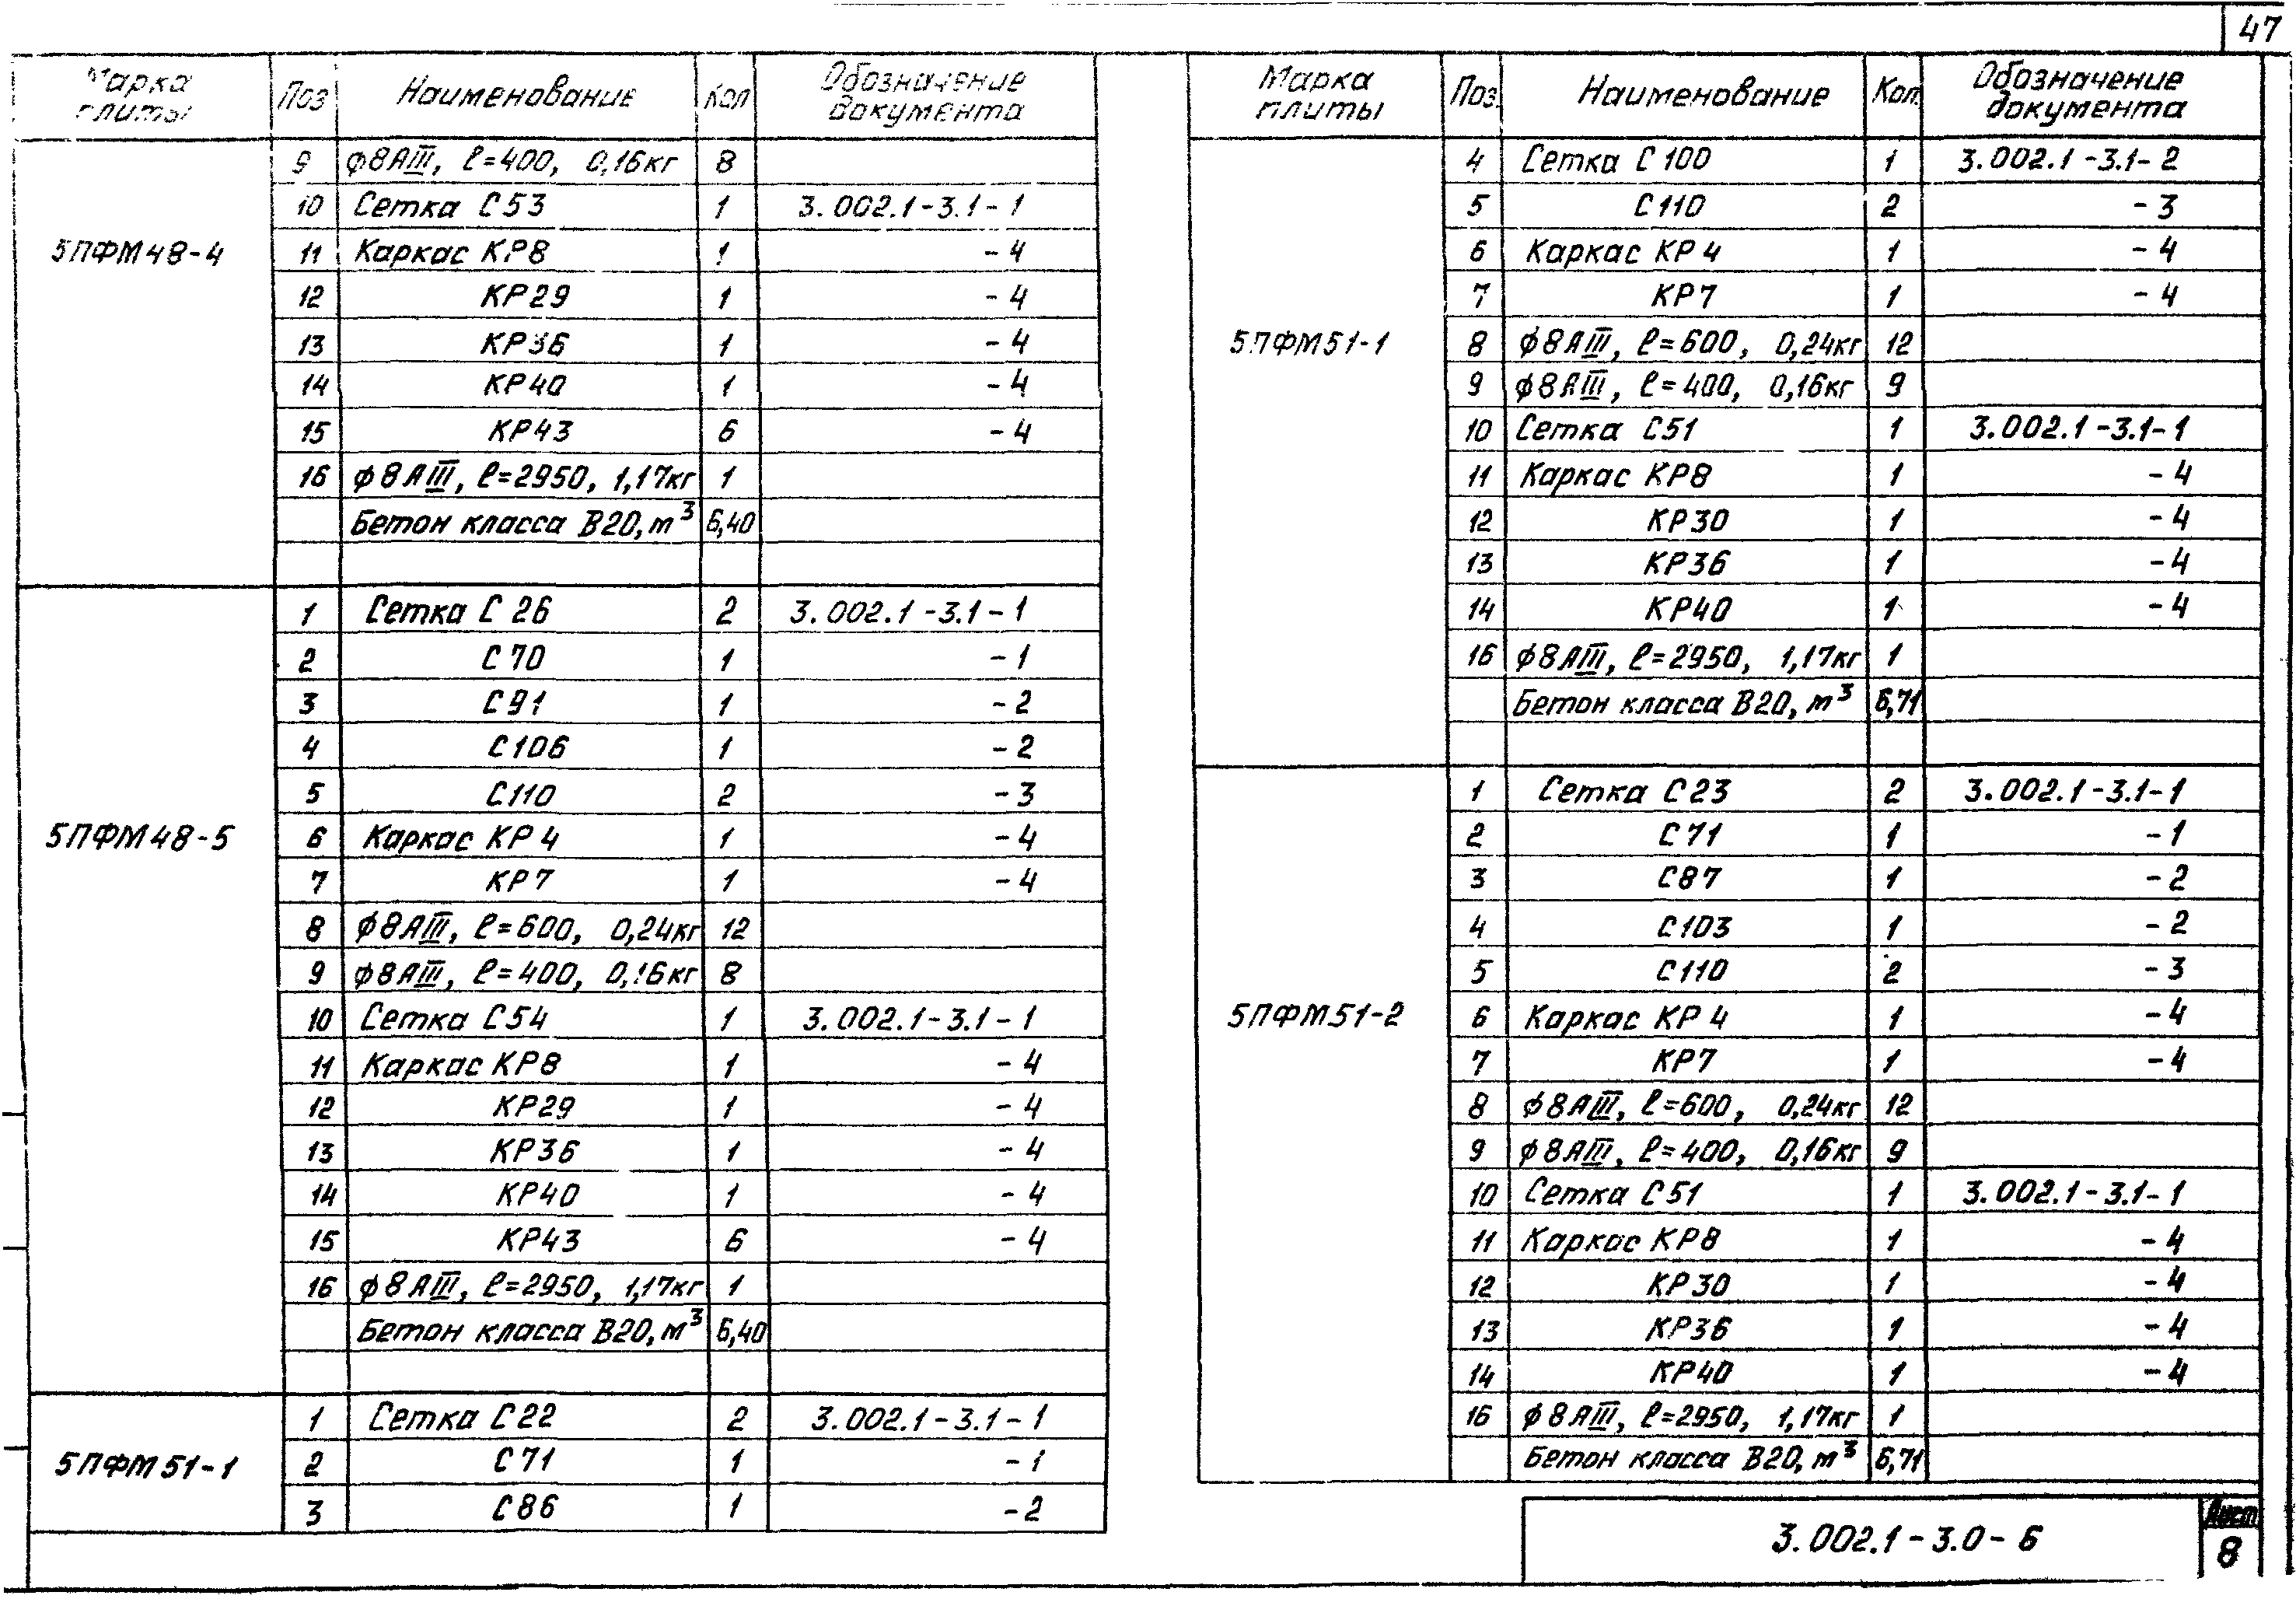 47
Марка плиты | Поз | Наименование | Кол | Обозначение документа
5ПФМ48-4
9 | ф8АIII, ℓ=400, 0,16кг | 8
10 | Сетка С53 | 1 | 3.002.1-3.1-1
11 | Каркас КР8 | 1 | -4
12 | КР29 | 1 | -4
13 | КР36 | 1 | -4
14 | КР40 | 1 | -4
15 | КР43 | 6 | -4
16 | ф8АIII, ℓ=2950, 1,17кг | 1
Бетон класса В20, м³ | 6,40
5ПФМ48-5
1 | Сетка С 26 | 2 | 3.002.1-3.1-1
2 | С70 | 1 | -1
3 | С91 | 1 | -2
4 | С106 | 1 | -2
5 | С110 | 2 | -3
6 | Каркас КР4 | 1 | -4
7 | КР7 | 1 | -4
8 | ф8АIII, ℓ=600, 0,24кг | 12
9 | ф8АIII, ℓ=400, 0,16кг | 8
10 | Сетка С54 | 1 | 3.002.1-3.1-1
11 | Каркас КР8 | 1 | -4
12 | КР29 | 1 | -4
13 | КР36 | 1 | -4
14 | КР40 | 1 | -4
15 | КР43 | 6 | -4
16 | ф8АIII, ℓ=2950, 1,17кг | 1
Бетон класса В20, м³ | 6,40
5ПФМ51-1
1 | Сетка С22 | 2 | 3.002.1-3.1-1
2 | С71 | 1 | -1
3 | С86 | 1 | -2
Марка плиты | Поз. | Наименование | Кол. | Обозначение документа
5ПФМ51-1
4 | Сетка С100 | 1 | 3.002.1-3.1-2
5 | С110 | 2 | -3
6 | Каркас КР4 | 1 | -4
7 | КР7 | 1 | -4
8 | ф8АIII, ℓ=600, 0,24кг | 12
9 | ф8АIII, ℓ=400, 0,16кг | 9
10 | Сетка С51 | 1 | 3.002.1-3.1-1
11 | Каркас КР8 | 1 | -4
12 | КР30 | 1 | -4
13 | КР36 | 1 | -4
14 | КР40 | 1 | -4
16 | ф8АIII, ℓ=2950, 1,17кг | 1
Бетон класса В20, м³ | 6,71
5ПФМ51-2
1 | Сетка С23 | 2 | 3.002.1-3.1-1
2 | С71 | 1 | -1
3 | С87 | 1 | -2
4 | С103 | 1 | -2
5 | С110 | 2 | -3
6 | Каркас КР4 | 1 | -4
7 | КР7 | 1 | -4
8 | ф8АIII, ℓ=600, 0,24кг | 12
9 | ф8АIII, ℓ=400, 0,16кг | 9
10 | Сетка С51 | 1 | 3.002.1-3.1-1
11 | Каркас КР8 | 1 | -4
12 | КР30 | 1 | -4
13 | КР36 | 1 | -4
14 | КР40 | 1 | -4
16 | ф8АIII, ℓ=2950, 1,17кг | 1
Бетон класса В20, м³ | 6,71
3.002.1-3.0-6
Лист
8